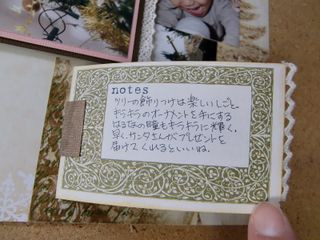 notes
ツリーの飾りつけは楽しいしごと
キラキラのオーナメントを手にする
はるなの瞳もキラキラに輝く。
早く、サンタさんがプレゼントを
届けてくれるといいね。